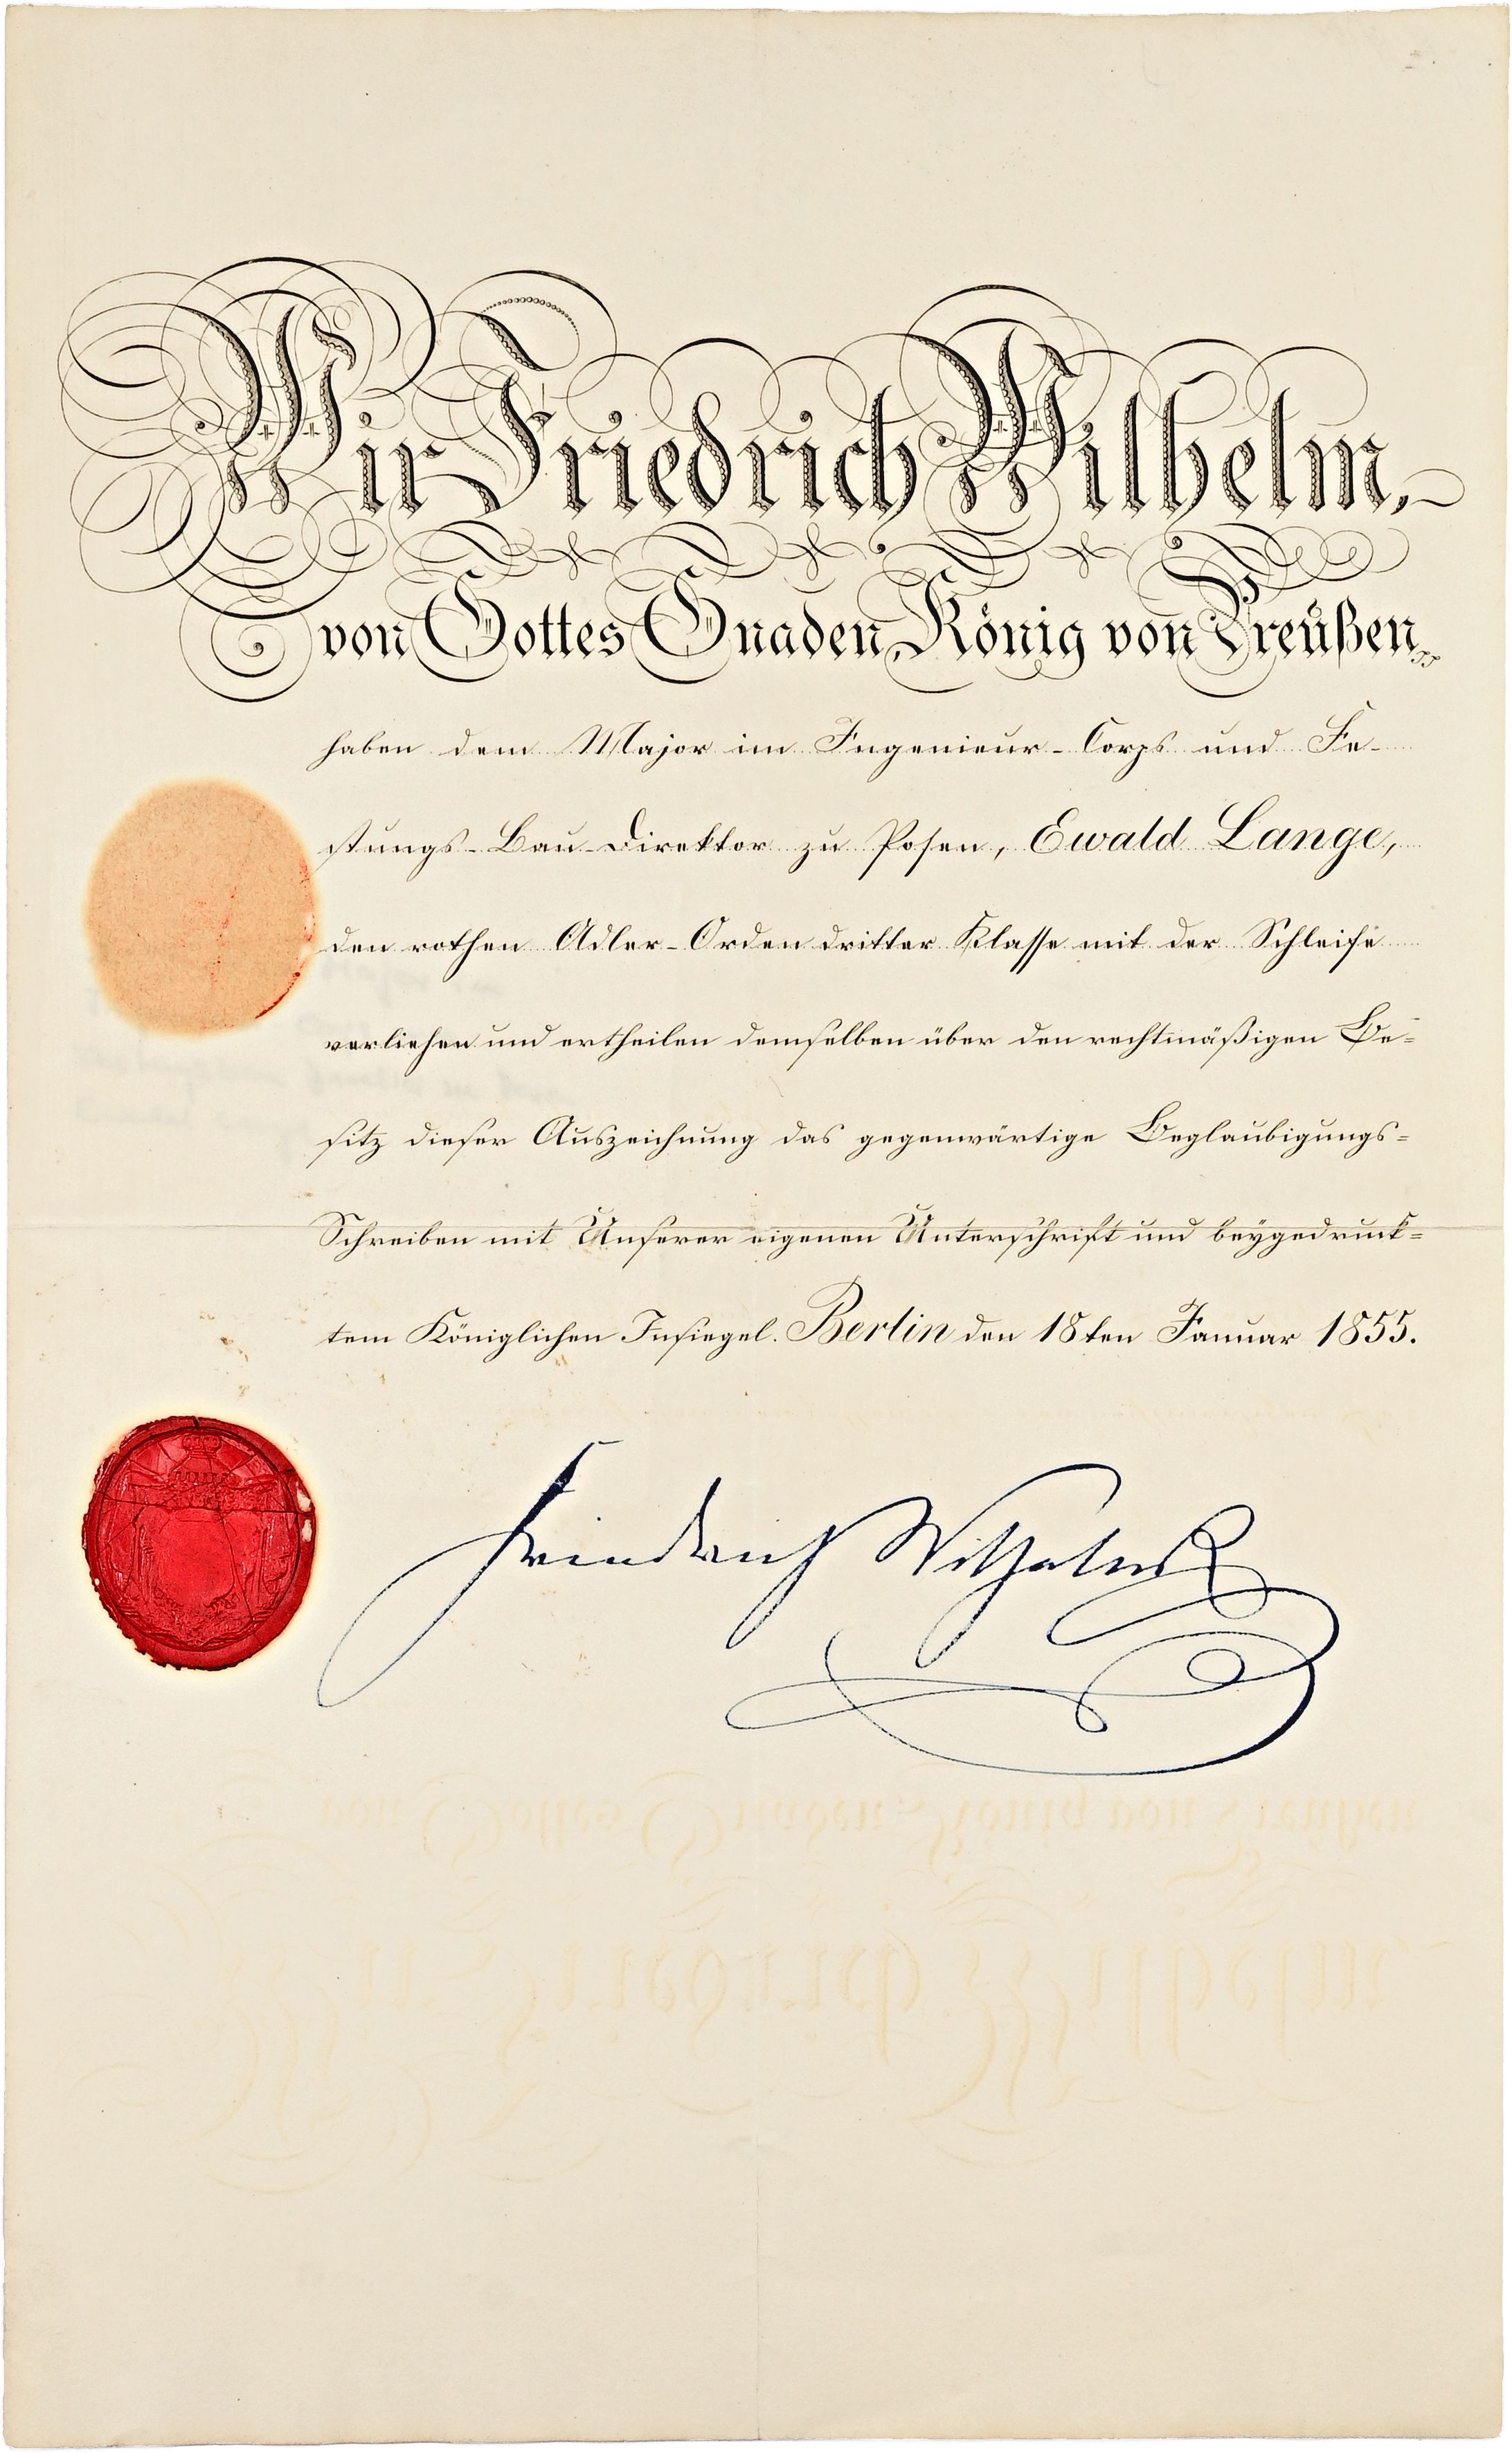 Wir Friedrich Wilhelm,
von Gottes Gnaden, König von Preußen,
haben dem Major im Ingenieur-Corps und Fe-
stungs-Bau-Direktor zu Posen, Ewald Lange,
den rothen Adler-Orden dritter Klasse mit der Schleife
verliehen und ertheilen demselben über den rechtmäßigen Be-
sitz dieser Auszeichnung das gegenwärtige Beglaubigungs-
Schreiben mit Unserer eigenen Unterschrift und beygedruck-
tem Königlichen Insiegel. Berlin den 18ten Januar 1855.
Friedrich Wilhelm